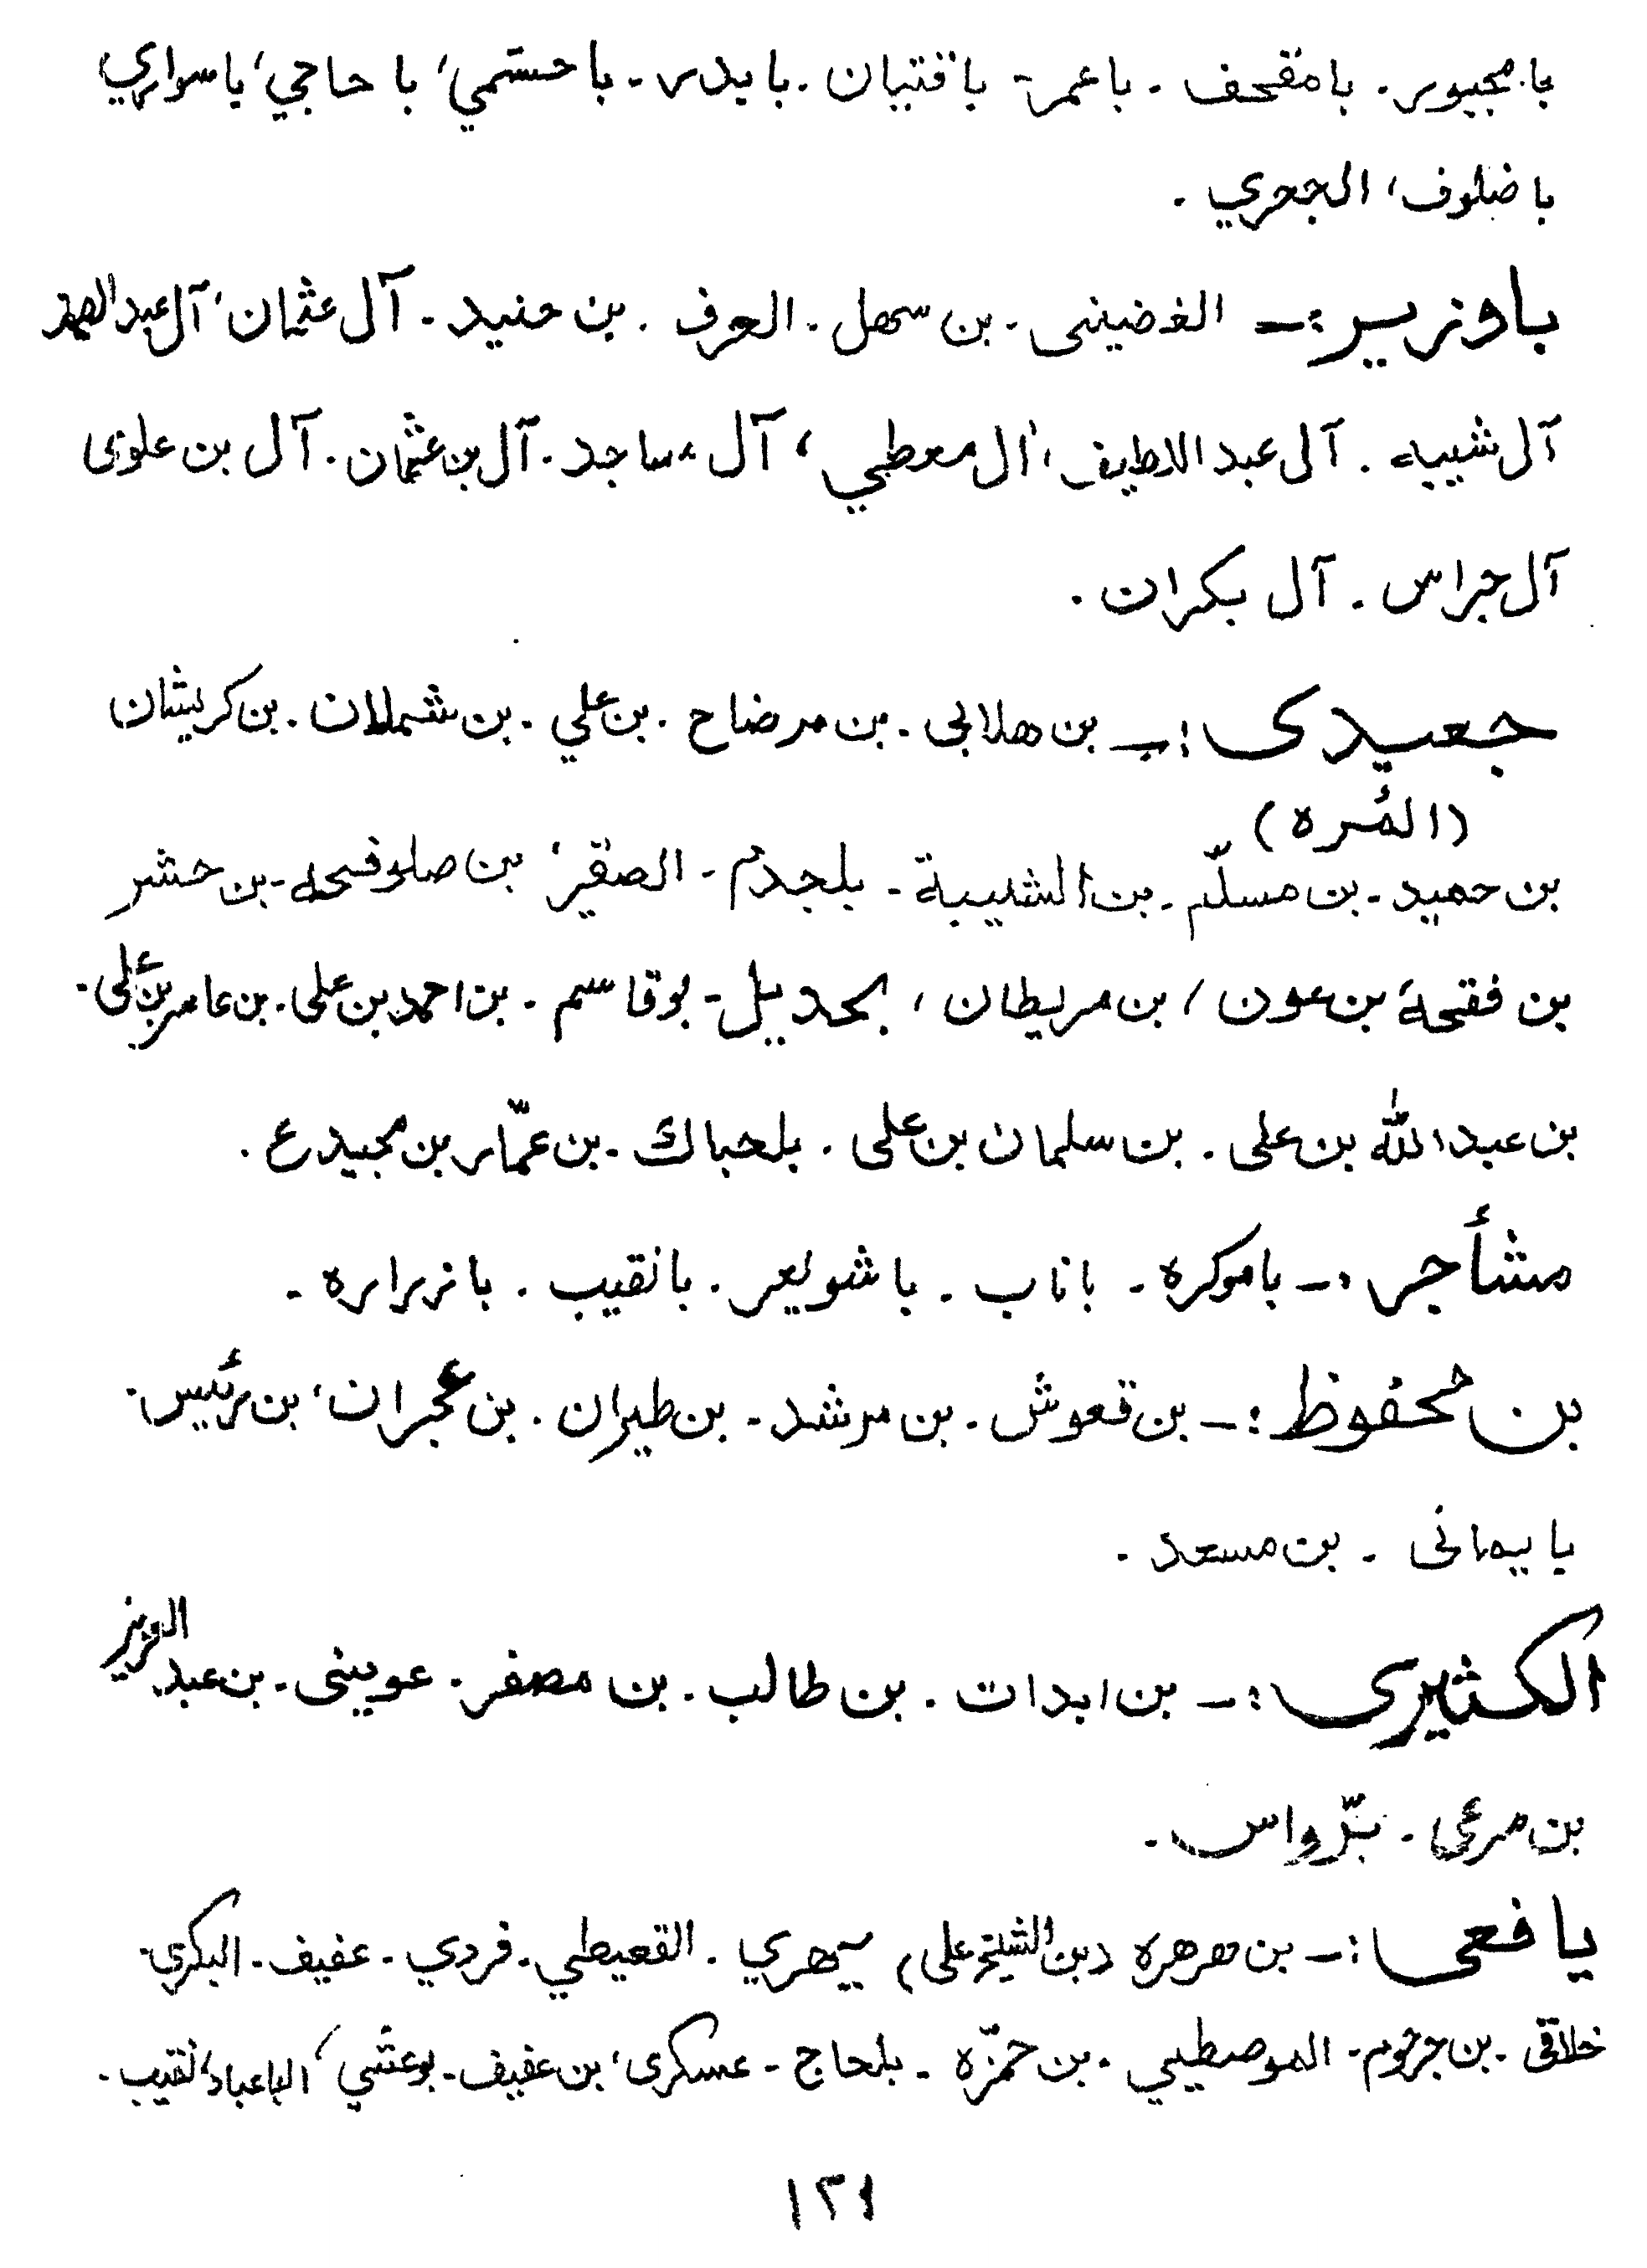 با مجبور. با مقحف. با عمر- با قتبان. با بدر. با حستمي، با حاجي، با سواري
با ضلوف، الجحري.
باوزير:ـ الغضيني. بن سهل. العرف. بن حنيد. آل عثمان، آل عبدالصمد
آل شيبه. آل عبد اللطيف، ال معطي، آل ساجد. آل بن عثمان. آل بن علوى
آل جراس. آل بكران.
جعيدى:ـ بن هلابى. بن مرضاح. بن علي. بن شملان. بن كريشان
(المُره)
بن حميد. بن مسلّم. بن الشيبة. بلجدم. الصقير، بن صلوفحه. بن حشر
بن فقحة بن عون / بن مريطان، بحديل. بوقاسم. بن احمد بن على. بن عامر بن على.
بن عبدالله بن على. بن سلمان بن على. بلحباك. بن عمّار بن مجيدع.
مشأجر:ـ باموكره. باناب. با شويعر. بانقيب. بازراره.
بن محفوظ:ـ بن قعوش. بن مرشد. بن طيران. بن عجران، بن رئيس.
با يمانى. بن مسعد.
الكثيرى:ـ بن ابدات. بن طالب. بن مصفر. عوينى. بن عبد العزيز
بن مرعى. بدّ واس.
يافعى:ـ بن هرهره (بن الشيخ على) يهري. القعيطي. فردي. عفيف. البكري
خلاقى. بن جرهوم. الموصطي. بن حمزه. بلحاج. عسكرى، بن عفيف. بوعشي، الباعباد، لنقيب.
١٢١